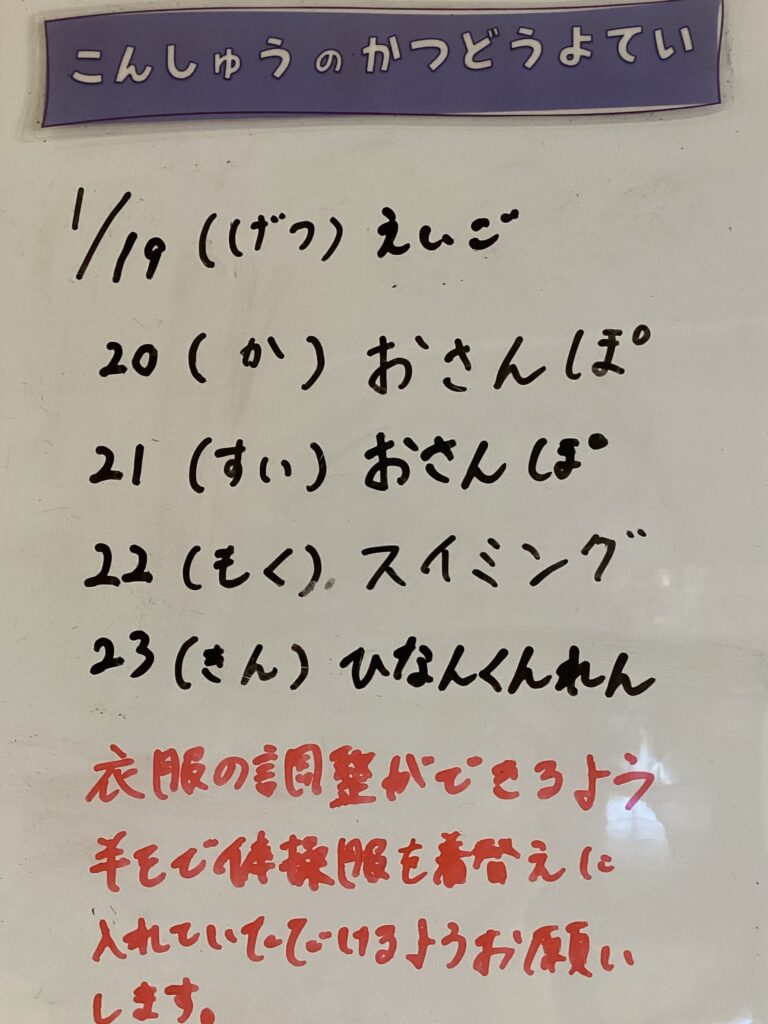 こんしゅうのかつどうよてい
1/19(げつ)えいご
20(か)おさんぽ
21(すい)おさんぽ
22(もく)スイミング
23(きん)ひなんくんれん
衣服の調整ができるよう
半そで体操服を着替えに
入れていただけるようお願い
します。